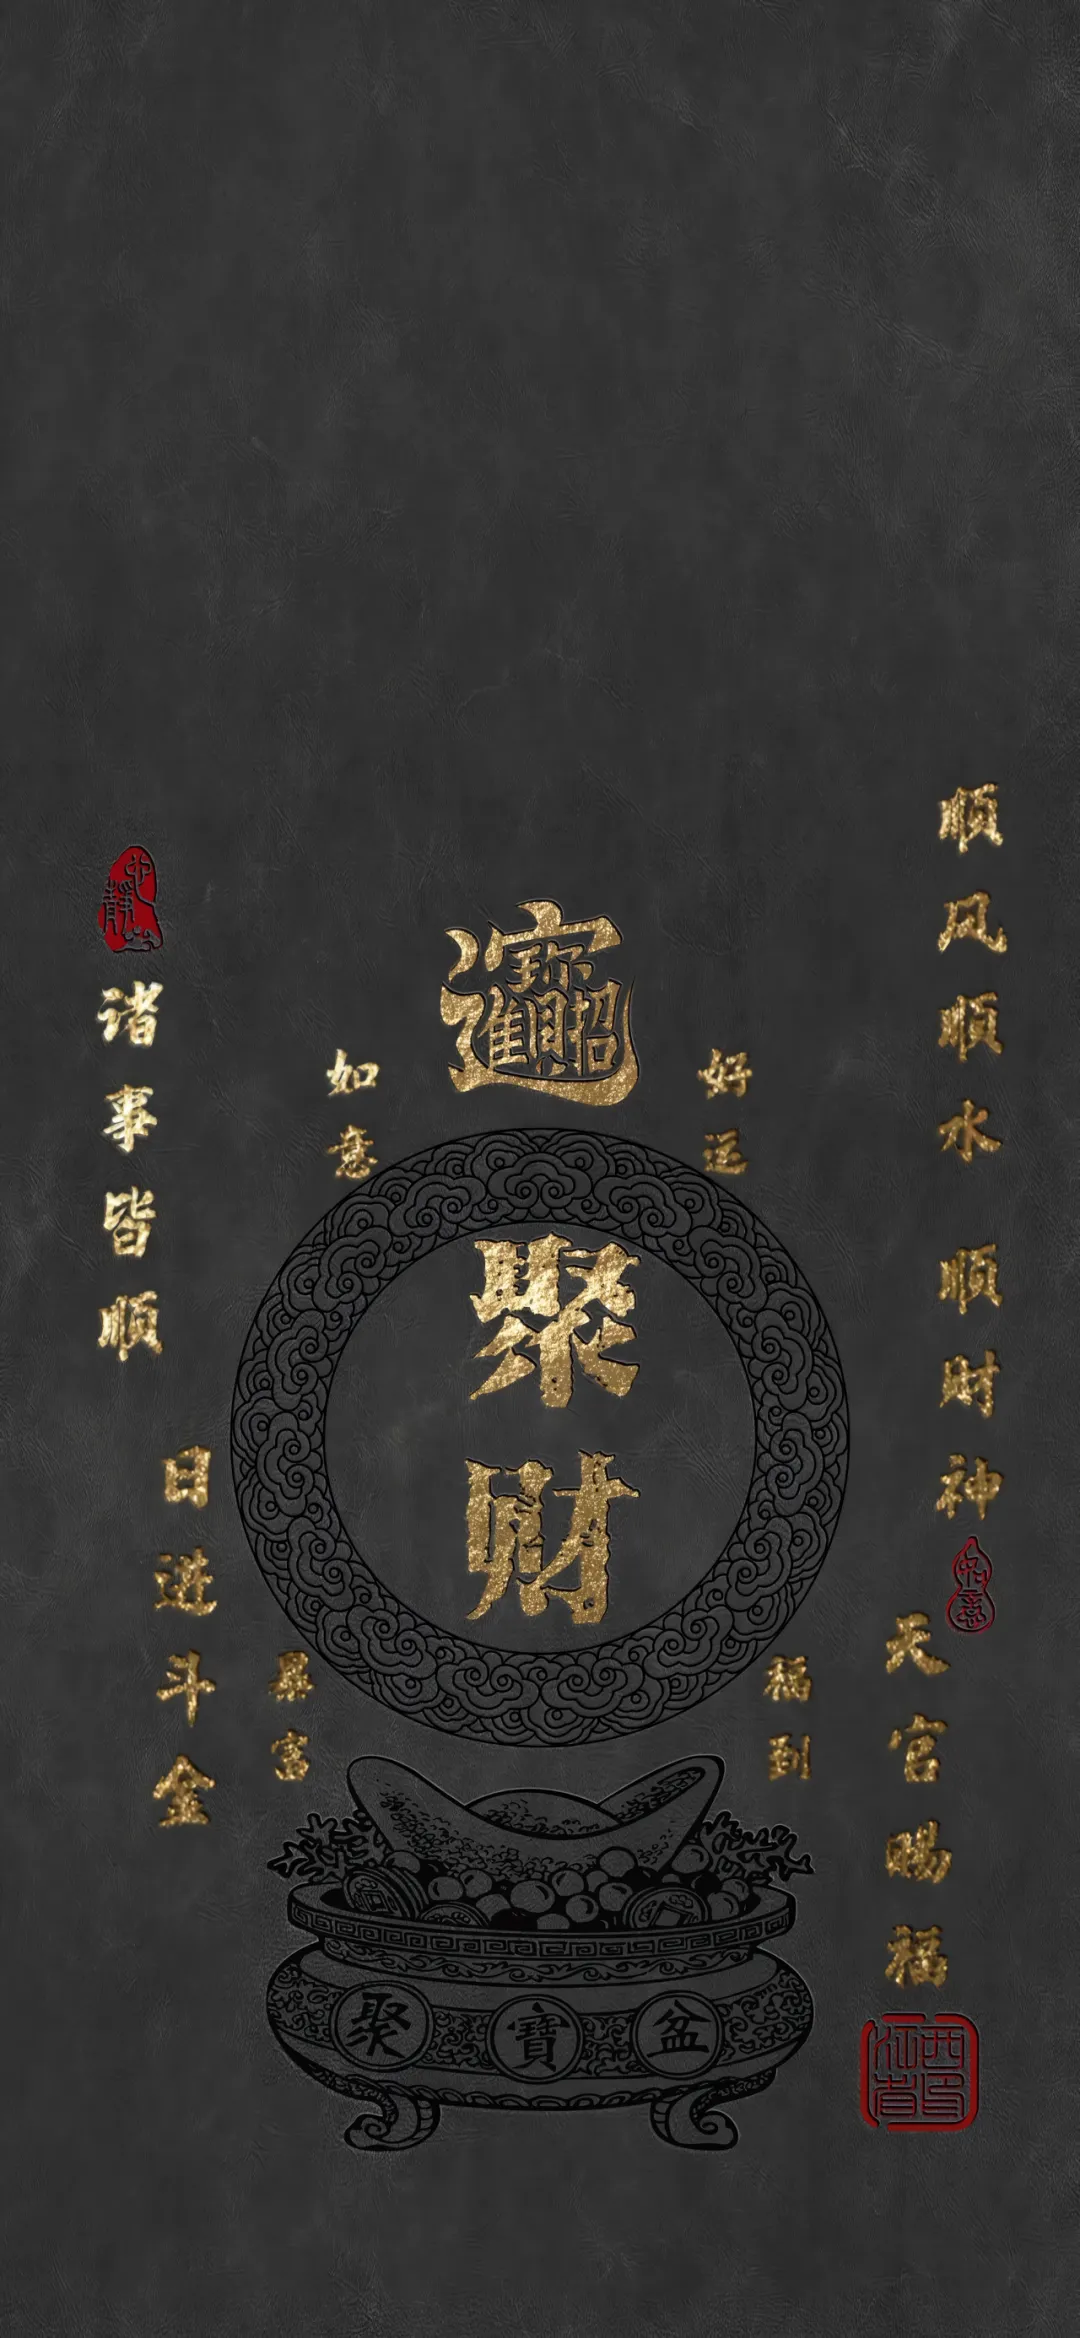 顺风顺水顺财神
天官赐福
好运
福到
招财进宝
聚财
聚寶盆
如意
暴富
诸事皆顺
日进斗金